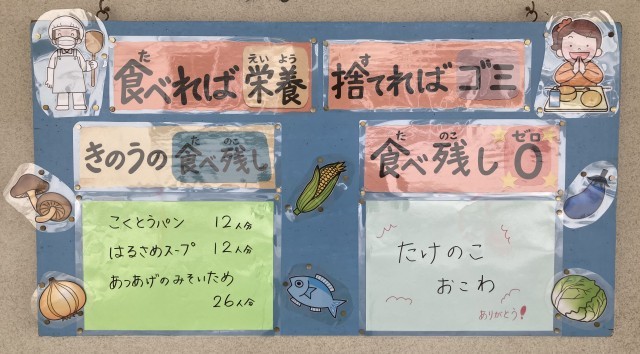 食べれば栄養
捨てればゴミ
きのうの食べ残し
食べ残し0
こくとうパン 12人分
はるさめスープ 12人分
あつあげのみそいため
26人分
たけのこ
おこわ
ありがとう!